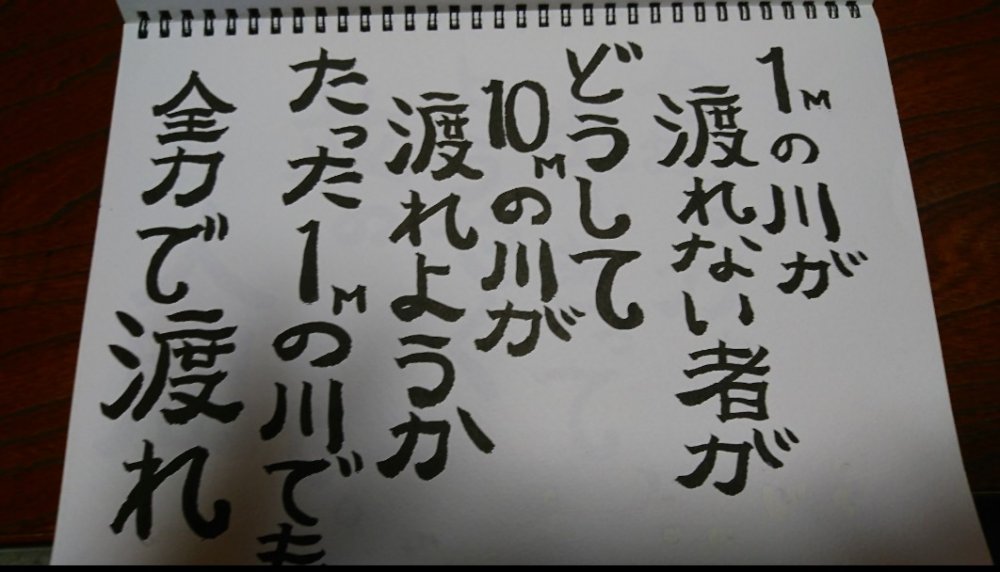 1Mの川が
渡れない者が
どうして
10Mの川が
渡れようか
たった1Mの川でも
全力で渡れ